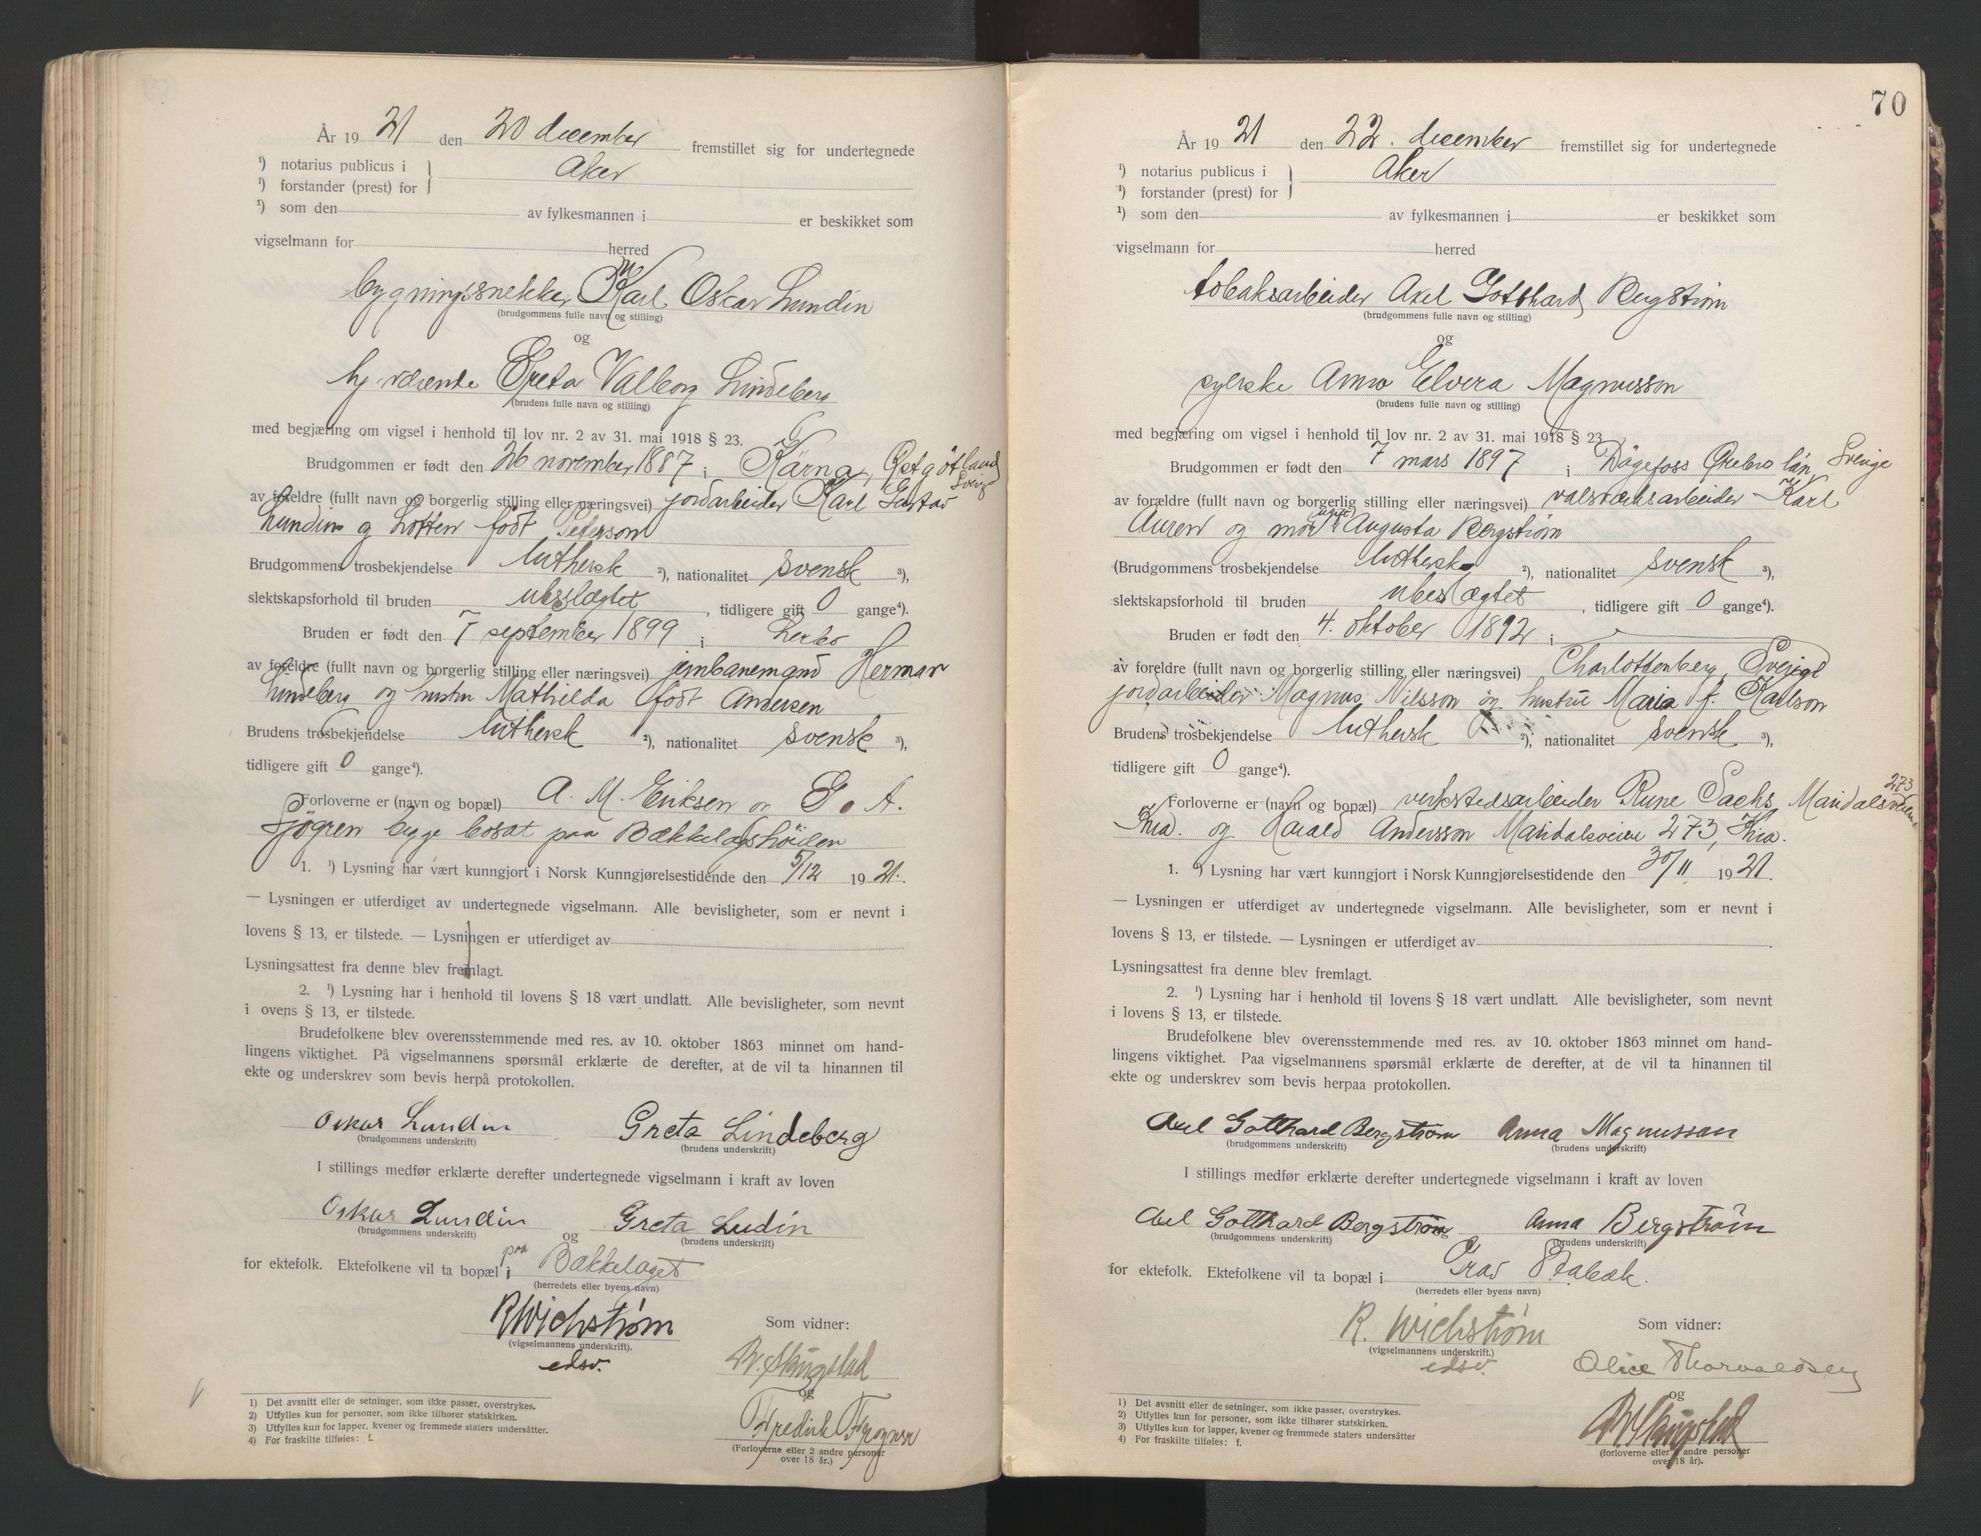 År 1921 den 20 december fremstillet sig for undertegnede
¹) notarius publicus i } Aker
¹) forstander (prest) for
¹) som den av fylkesmannen i er beskikket som
vigselmann for herred
bygningssnekker Karl Oskar Lundin
(brudgommens fulle navn og stilling)
og
hj værende Greta Valborg Lindeberg
(brudens fulle navn og stilling)
med begjæring om vigsel i henhold til lov nr. 2 av 31. mai 1918 § 23.
Brudgommen er født den 26 november 1887 i Kärna, Østgötland
Sverige
av foreldre (fullt navn og borgerlig stilling eller næringsvei) jordarbeider Karl Gustav
Lundin og Lotten født Peterson
Brudgommens trosbekjendelse luthersk ²), nationalitet svensk ³),
slektskapsforhold til bruden ubeslægtet, tidligere gift 0 gange⁴).
Bruden er født den 7 september 1899 i Lerbo
av foreldre (fullt navn og borgerlig stilling eller næringsvei) jernbanemand Herman
Lindeberg og hustru Mathilda født Andersen
Brudens trosbekjendelse luthersk ²), nationalitet svensk ³),
tidligere gift 0 gange⁴).
Forloverne er (navn og bopæl) A. M. Eriksen og G. A.
Sjögren begge bosat paa Bækkelagshøiden
1. ¹) Lysning har vært kunngjort i Norsk Kunngjørelsestidende den 5/12 1921.
— Lysningen er utferdiget av undertegnede vigselmann. Alle bevisligheter, som er nevnt i
lovens § 13, er tilstede. — Lysningen er utferdiget av
Lysningsattest fra denne blev fremlagt.
2. ¹) Lysning har i henhold til lovens § 18 vært undlatt. Alle bevisligheter, som nevnt
i ovens § 13, er tilstede.
Brudefolkene blev overensstemmende med res. av 10. oktober 1863 minnet om hand-
lingens viktighet. På vigselmannens spørsmål erklærte de derefter, at de vil ta hinannen til
ekte og underskrev som bevis herpå protokollen.
Oskar Lundin Greta Lindeberg
(brudgommens underskrift) (brudens underskrift)
I stillings medfør erklærte derefter undertegnede vigselmann i kraft av loven
Oskar Lundin Greta Ludin
(brudgommens underskrift) (brudens underskrift)
og
for ektefolk. Ektefolkene vil ta bopæl i paa Bækkelaget
(herredets eller byens navn)
R Wichstrøm Som vidner:
(vigselmannens underskrift).
edsv. B. Skugstad
og
Fredrik
(Forloverne eller 2 andre personer
over 18 år.)
1) Det avsnitt eller de setninger, som ikke passer, overstrykes.
2) Utfylles kun for personer, som ikke tilhører statskirken.
3) Utfylles kun for lapper, kvener og fremmede staters undersåtter.
4) For fraskilte tilføies: f.
70
År 1921 den 22. december fremstillet sig for undertegnede
¹) notarius publicus i } Aker
¹) forstander (prest) for
¹) som den av fylkesmannen i er beskikket som
vigselmann for herred
tobaksarbeider Axel Gotthard Bergstrøm
(brudgommens fulle navn og stilling)
og
syerske Anna Elvera Magnusson
(brudens fulle navn og stilling)
med begjæring om vigsel i henhold til lov nr. 2 av 31. mai 1918 § 23
Brudgommen er født den 7 mars 1897 i Dägefoss Ørebro län, Sverige
av forældre (fullt navn og borgerlig stilling eller næringsvei) valsværksarbeider Karl
Auren og mor (ugift) Augusta Bergstrøm
(Brudgommens trosbekjendelse luthersk ²), nationalitet svensk ³),
slektskapsforhold til bruden ubeslægtet, tidligere gift 0 gange⁴).
Bruden er født den 4. oktober 1892 i
av foreldre (fullt navn og borgerlig stilling, eller næringsvei) Charlottenberg, Sverige
jordarbeider Magnus Nilsson og hustru Maria f. Karlson
Brudens trosbekjendelse luthersk ²), nationalitet svensk ³),
tidligere gift 0 gange⁴).
273
Forloverne er (navn og bopæl) verkstedsarbeider Rune Sachs, Mandalsveien
Kria. og Harald Andersson Mandalsveien 273, Kria.
1. ¹) Lysning har vært kunngjort i Norsk Kunngjørelsestidende den 30/11 1921.
— Lysningen er utferdiget av undertegnede vigselmann. Alle bevisligheter, som er nevnt i
lovens § 13, er tilstede. — Lysningen er utferdiget av
Lysningsattest fra denne blev fremlagt.
2. ¹) Lysning har i henhold til lovens § 18 vært undlatt. Alle bevisligheter, som nevnt
i lovens § 13, er tilstede.
Brudefolkene blev overensstemmende med res. av 10. oktober 1863 minnet om hand-
lingens viktighet. Paa vigselmannens spørsmål erklærte de derefter, at de vil ta hinannen til
ekte og underskrev som bevis herpaa protokollen.
Axel Gotthard Bergstrøm Anna Magnusson
(brudgommens underskrift) (brudens underskrift)
I stillings medfør erklærte derefter undertegnede vigselmann i kraft av loven
Axel Gotthard Bergstrøm og Anna Bergstrøm
(brudgommens underskrift) (brudens underskrift)
for ektefolk. Ektefolkene vil ta bopæl i Grav Stabæk.
(herredets eller byens navn)
R. Wichstrøm Som vidner:
(vigselmannens underskrift.)
edsv. Alice Thorvaldsen
og
B. Skugstad
(forloverne eller 2 andre personer
over 18 år).
1) Det avsnitt eller de setninger, som ikke passer, overstrykes.
2) Utfylles kun for personer, som ikke tilhører statskirken.
3) Utfylles kun for lapper, kvener og fremmede staters undersåtter
4) For fraskilte tilføies: f.